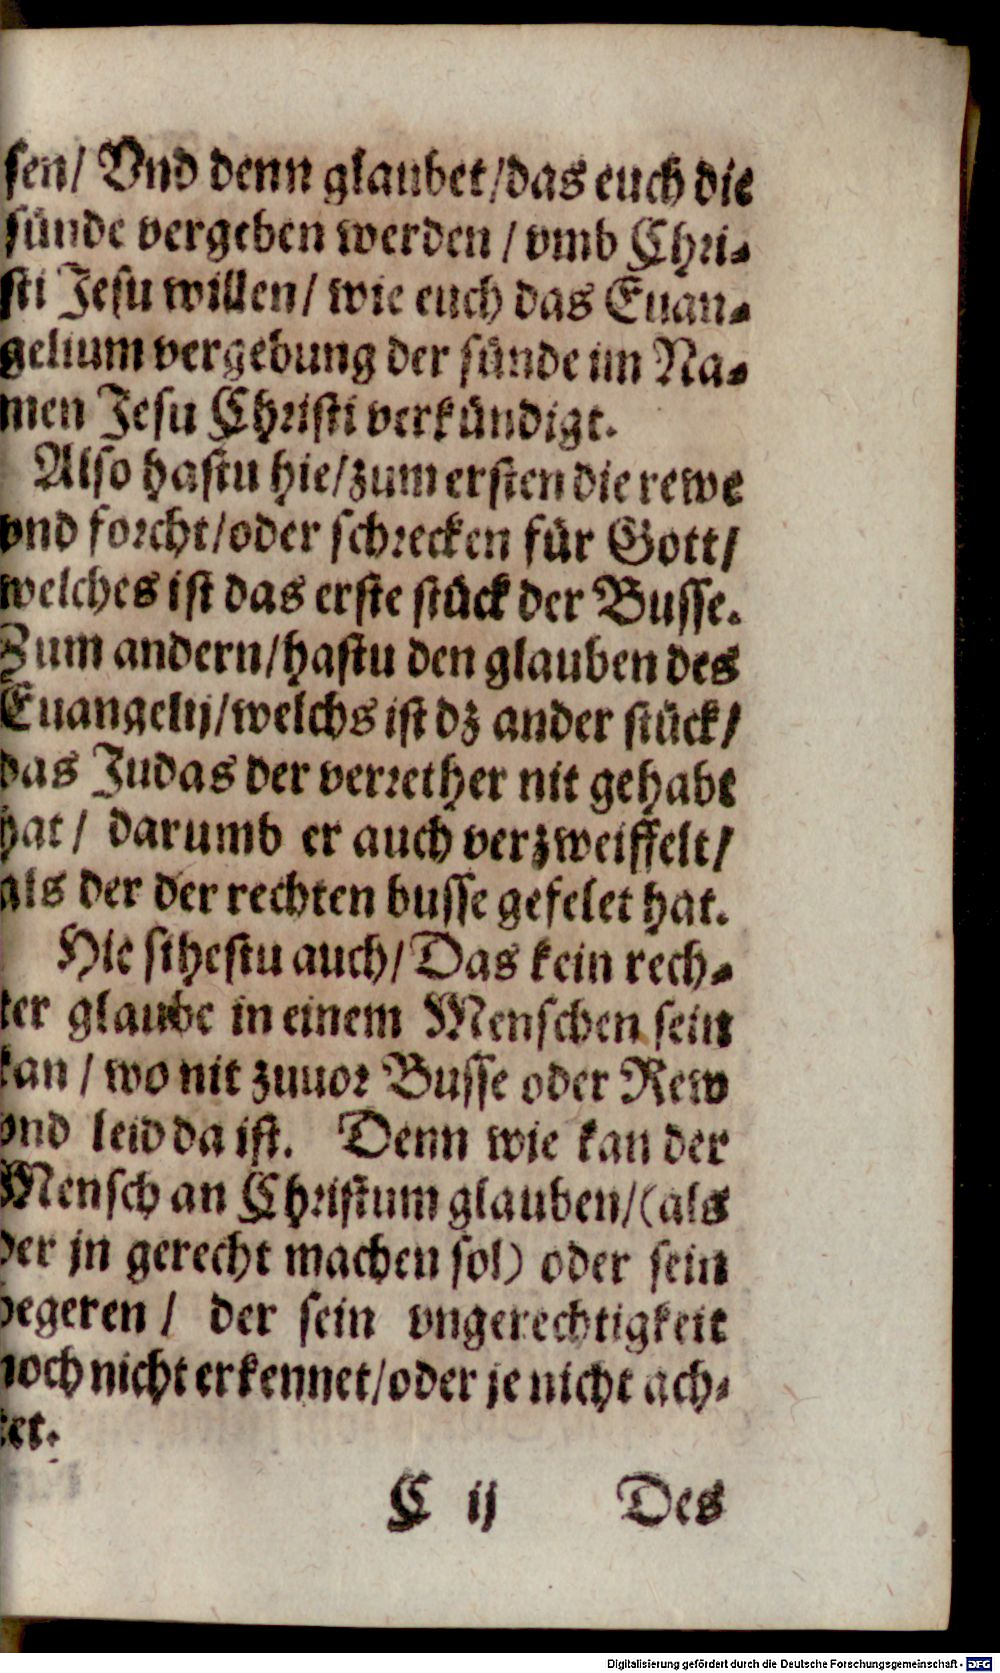 sen/ Vnd denn glaubet/das euch die
sünde vergeben werden / vmb Chri-
sti Jesu willen/ wie euch das Euan-
gelium vergebung der sünde im Na-
men Jesu Christi verkündigt.
Also hastu hie/zum ersten die rewe
vnd forcht/oder schrecken für Gott/
welches ist das erste stück der Busse.
Zum andern/hastu den glauben des
Euangelij/welchs ist dz ander stück/
das Judas der verrether nit gehabt
hat / darumb er auch verzweiffelt/
als der der rechten busse gefelet hat.
Hie sihestu auch/ Das kein rech-
ter glaube in einem Menschen sein
kan / wo nit zuuor Busse oder Rew
vnd leid da ist. Denn wie kan der
Mensch an Christum glauben/(als
der jn gerecht machen sol) oder sein
begeren / der sein vngerechtigkeit
noch nicht erkennet/oder je nicht ach-
tet.
C ij Des
Digitalisierung gefördert durch die Deutsche Forschungsgemeinschaft - DFG